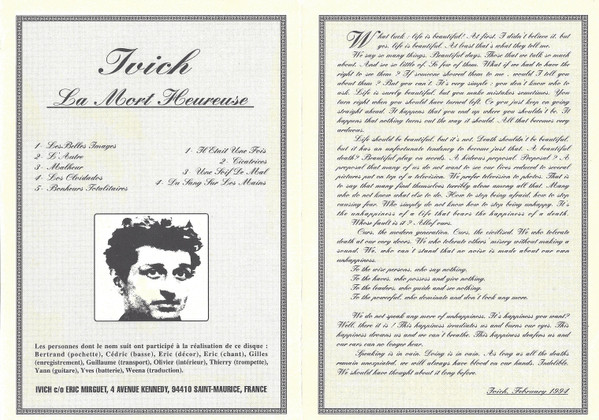 Ivich
La Mort Heureuse
1 Les Belles Images
2 L'Autre
3 Malheur
4 Los Olvidados
5 Bonheurs Totalitaires
1 Il Etait Une Fois
2 Cicatrices
3 Une Soif De Mal
4 Du Sang Sur Les Mains
Les personnes dont le nom suit ont participé à la réalisation de ce disque :
Bertrand (pochette), Cédric (basse), Eric (décor), Eric (chant), Gilles
(enregistrement), Guillaume (transport), Olivier (intérieur), Thierry (trompette),
Yann (guitare), Yves (batterie), Weena (traduction).
IVICH c/o ERIC MIRGUET, 4 AVENUE KENNEDY, 94410 SAINT-MAURICE, FRANCE
What luck : life is beautiful! At first, I didn't believe it, but
yes, life is beautiful. At least that's what they tell me.
We say so many things. Beautiful things. Those that we talk so much
about. And see so little of. So few of them. What if we had to have the
right to see them ? If someone showed them to me, would I tell you
about them ? But you can't. It's very simple : you don't know who to
ask. Life is surely beautiful, but you make mistakes sometimes. You
turn right when you should have turned left. Or you just keep on going
straight ahead. It happens that you end up where you shouldn't be. It
happens that nothing turns out the way it should. All that becomes very
arduous.
Life should be beautiful, but it's not. Death shouldn't be beautiful,
but it has an unfortunate tendency to become just that. A beautiful
death? Beautiful play on words. A hideous proposal. Proposal ? A
proposal that many of us do not want to see our lives reduced to several
pictures put on top of a television. We prefer television to photos. That is
to say, that many find themselves terribly alone among all that. Many
who do not know what else to do. How to stop being afraid, how to stop
causing fear. Who simply do not know how to stop being unhappy. It's
the unhappiness of a life that bears the happiness of a death.
Whose fault is it ? All of ours.
Ours, the modern generation. Ours, the civilized. We who tolerate
death at our very doors. We who tolerate others misery without making a
sound. We, who can't stand that no noise is made about our own
unhappiness.
To the wise persons, who say nothing.
To the haves, who possess and give nothing.
To the leaders, who guide and see nothing.
To the powerful, who dominate and don't look any more.
We do not speak any more of unhappiness. It's happiness you want?
Well, there it is ! This happiness invalidates us and burns our eyes. This
happiness drowns us and we can't breathe. This happiness deafens us and
our ears can no longer hear.
Speaking is in vain. Doing is in vain. As long as all the deaths
remain unexpiated, we will always have blood on our hands. Indelible.
We should have thought about it long before.
Ivich, February 1994